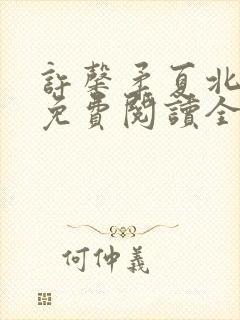 許馨矛夏北
免費閱讀全
何仲義